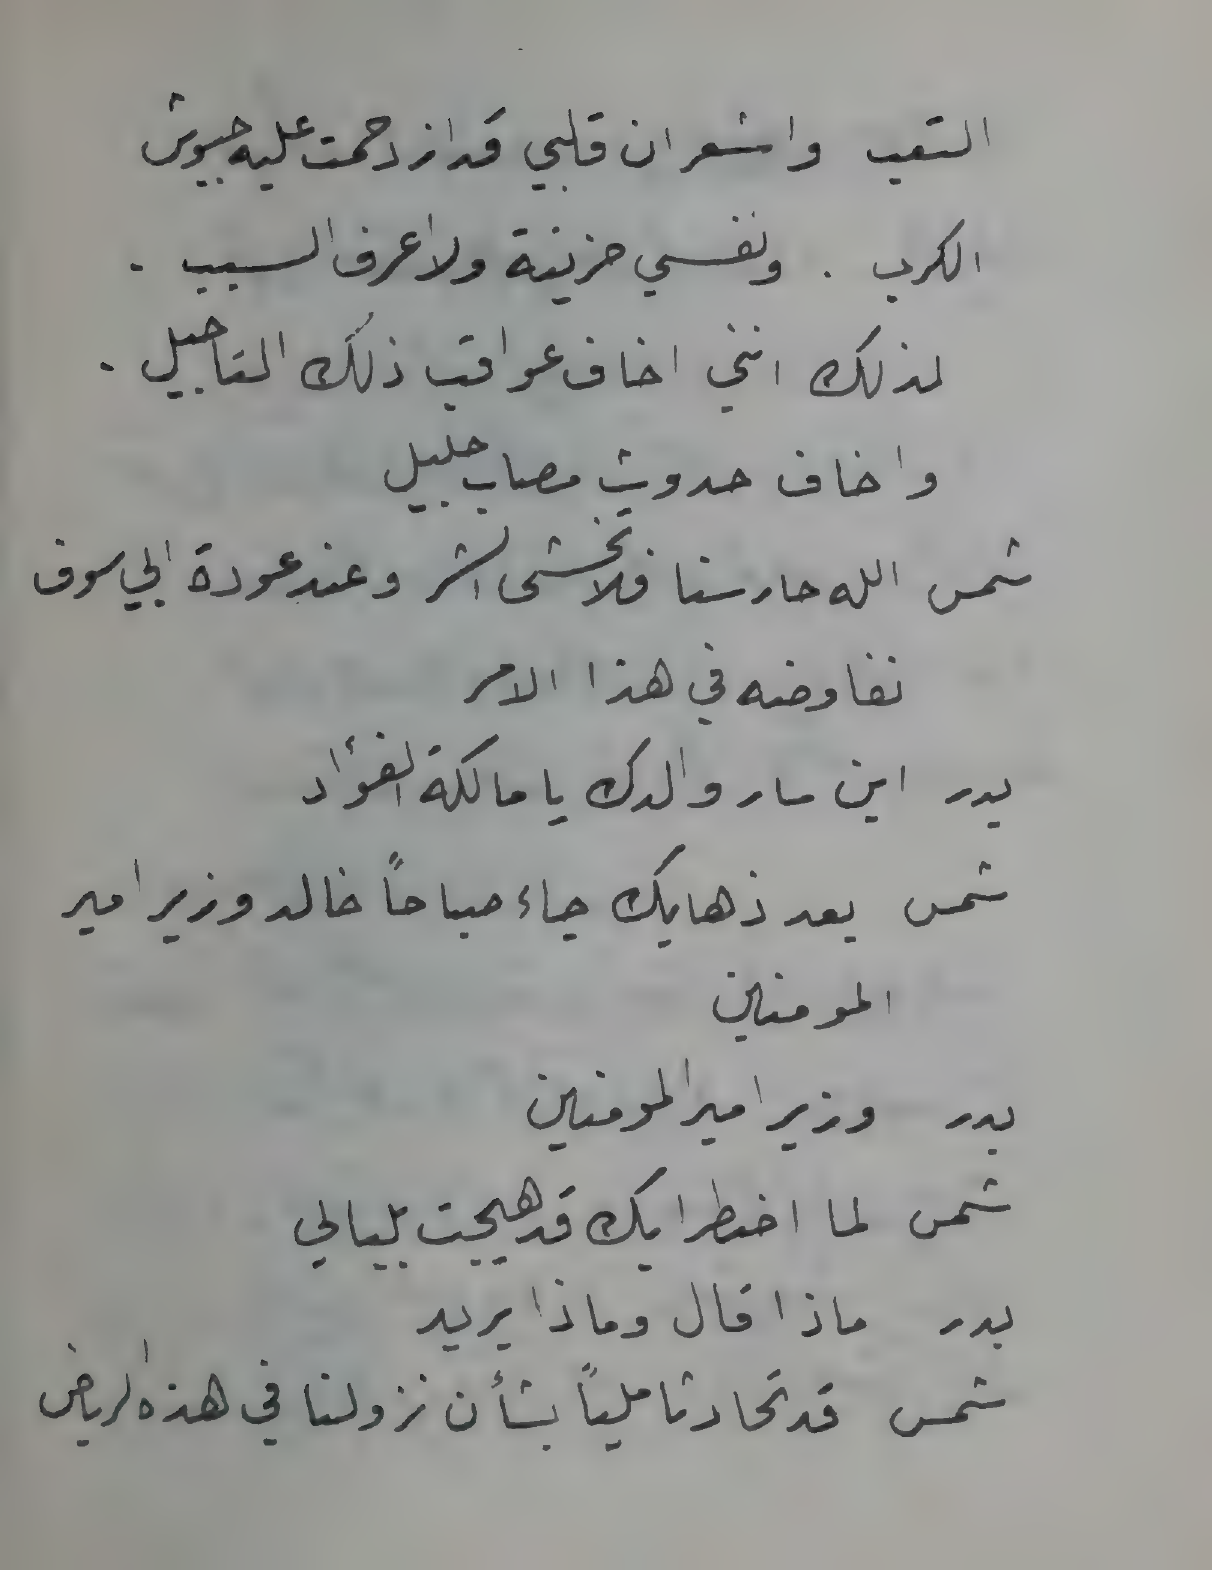 التعب واشعر ان قلبي قد ازدحمت عليه جيوش
الكرب . ونفسي حزينة ولا اعرف السبب .
لذلك انني اخاف عواقب ذلك التاجيل .
واخاف حدوث مصاب جليل
شمس الله حارسنا فلا تخشى الشر وعند عودة ابي سوف
نفاوضه في هذا الامر
بدر اين سار والدك يا مالكة الفؤاد
شمس بعد ذهابك جاء صباحاً خالد وزير امير
المومنين
بدر وزير امير المومنين
شمس لما اضطرابك قد هيجت بلبالي
بدر ماذا قال وماذا يريد
شمس قد تحادثا ملياً بشأن نزولنا في هذه الرياض